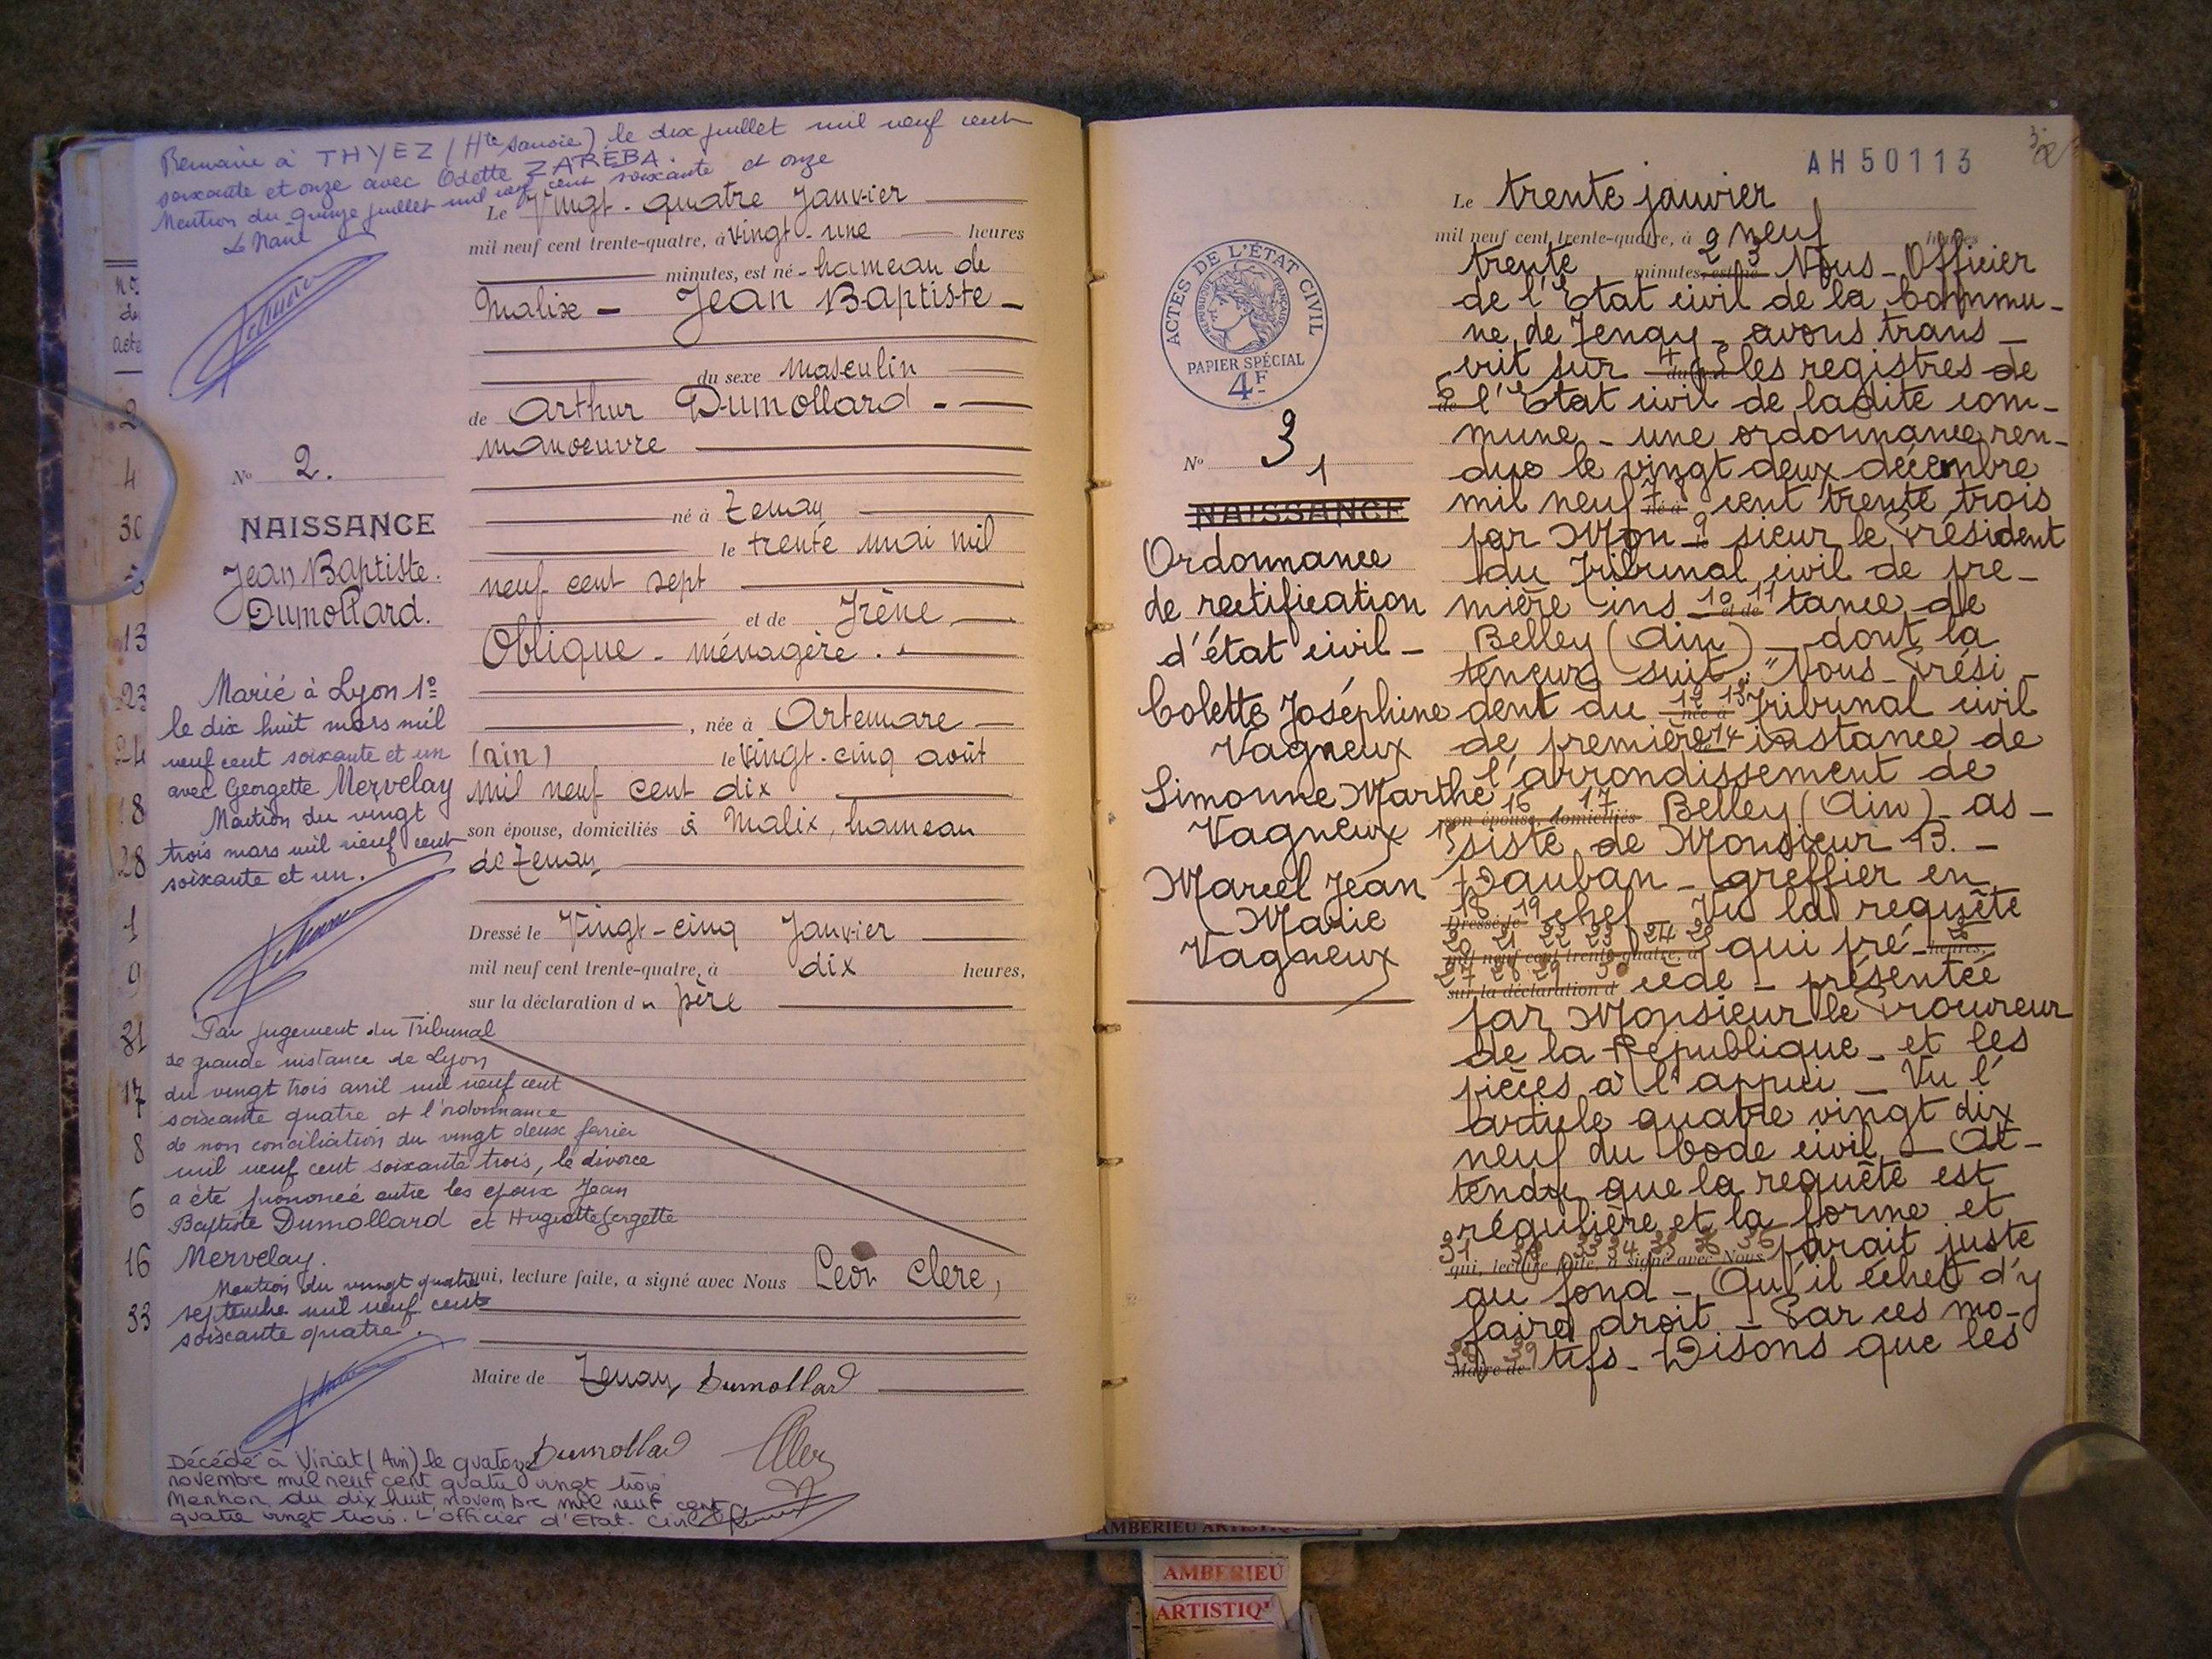 Remarié à THYEZ (Hte Savoie), le dix juillet mil neuf cent
soixante et onze avec Odette ZAREBA.
Mention du quinze juillet mil neuf cent soixante et onze
Le Maire
no
de
acte
2
4
30
5
13
23
24
18
28
1
9
31
17
8
6
16
33
No 2.
NAISSANCE
Jean Baptiste.
Dumollard.
Marié à Lyon 1º
le dix huit mars mil
neuf cent soixante et un
avec Georgette Mervelay
Mention du vingt
trois mars mil neuf cent
soixante et un.
Par jugement du Tribunal
de grande instance de Lyon
du vingt trois avril mil neuf cent
soixante quatre et l'ordonnance
de non conciliation du vingt deux février
mil neuf cent soixante trois, le divorce
a été prononcé entre les époux Jean
Baptiste Dumollard et Huguette Georgette
Mervelay.
Mention du vingt quatre
septembre mil neuf cent
soixante quatre.
Décédé à Viriat (Ain) le quatorze
novembre mil neuf cent quatre vingt trois
Mention du dix huit novembre mil neuf cent
quatre vingt trois. L'officier d'Etat. Civil
Le Vingt-quatre Janvier
mil neuf cent trente-quatre, à vingt-une heures
minutes, est né - hameau de
Malix - Jean Baptiste -
du sexe masculin
de Arthur Dumollard -
manoeuvre
né à Tenay
le trente mai mil
neuf cent sept
et de Irène
Oblique - ménagère.
, née à Artemare
(Ain) le vingt-cinq août
mil neuf cent dix
son épouse, domiciliés à Malix, hameau
de Tenay
Dressé le Vingt-cinq Janvier
mil neuf cent trente-quatre, à dix heures,
sur la déclaration du père
qui, lecture faite, a signé avec Nous Léon Clerc,
Maire de Tenay, Dumollard
Dumollard
AH 50113
ACTES DE L'ÉTAT CIVIL
RÉPUBLIQUE FRANÇAISE
PAPIER SPÉCIAL
4F
No 3
1
NAISSANCE
Ordonnance
de rectification
d'état civil -
Colette Joséphine
Vagneux
Simonne Marthe
Vagneux
Marcel Jean
Marie
Vagneux
Le trente janvier
mil neuf cent trente-quatre, à 2 neuf heures
trente minutes, est né 3 Nous - Officier
de l'Etat civil de la Commu-
ne de Tenay - avons trans-
crit sur 4 du sexe 5 les registres de
6 de l'Etat civil de ladite com-
mune - une ordonnance ren-
due le vingt deux décembre
mil neuf 7 né à 8 cent trente trois
par Mon- 9 le sieur le Président
du Tribunal civil de pre-
mière ins 10 et de 11 tance de
Belley (Ain) - dont la
teneur suit: "Nous - Prési-
dent du 12 née à 13 Tribunal civil
de première 14 le instance de
l'arrondissement de
15 16 17 son épouse, domiciliés Belley (Ain) - as-
sisté de Monsieur B. -
Dauban - greffier en
18 Dressé le 19 chef - Vu la requête
20 21 22 23 24 25 mil neuf cent trente-quatre, à qui pré- 26 heures,
27 28 29 30 sur la déclaration d cède - présentée
par Monsieur le Procureur
de la République - et les
pièces à l'appui - Vu l'
article quatre vingt dix
neuf du Code civil - At-
tendu que la requête est
régulière et la forme et
31 32 33 34 35 36 qui, lecture faite, a signé avec Nous parait juste
au fond - Qu'il échet d'y
faire droit - Par ces mo-
38 39 Maire de tifs - Disons que les
AMBERIEU ARTISTIQUE
AMBERIEU
ARTISTIQ